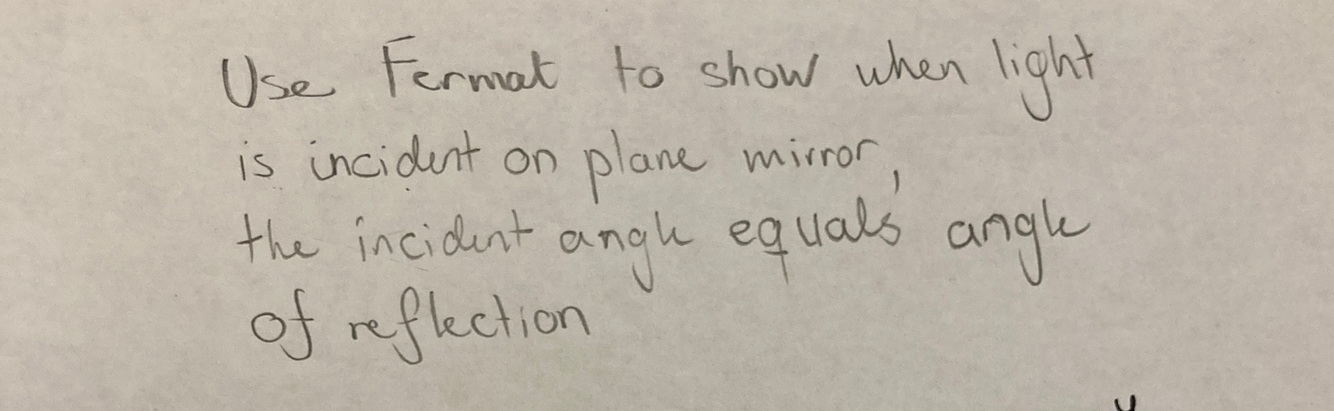 Use Fermat to show when light
is incident on plane mirror,
the incident angle equals angle
of reflection